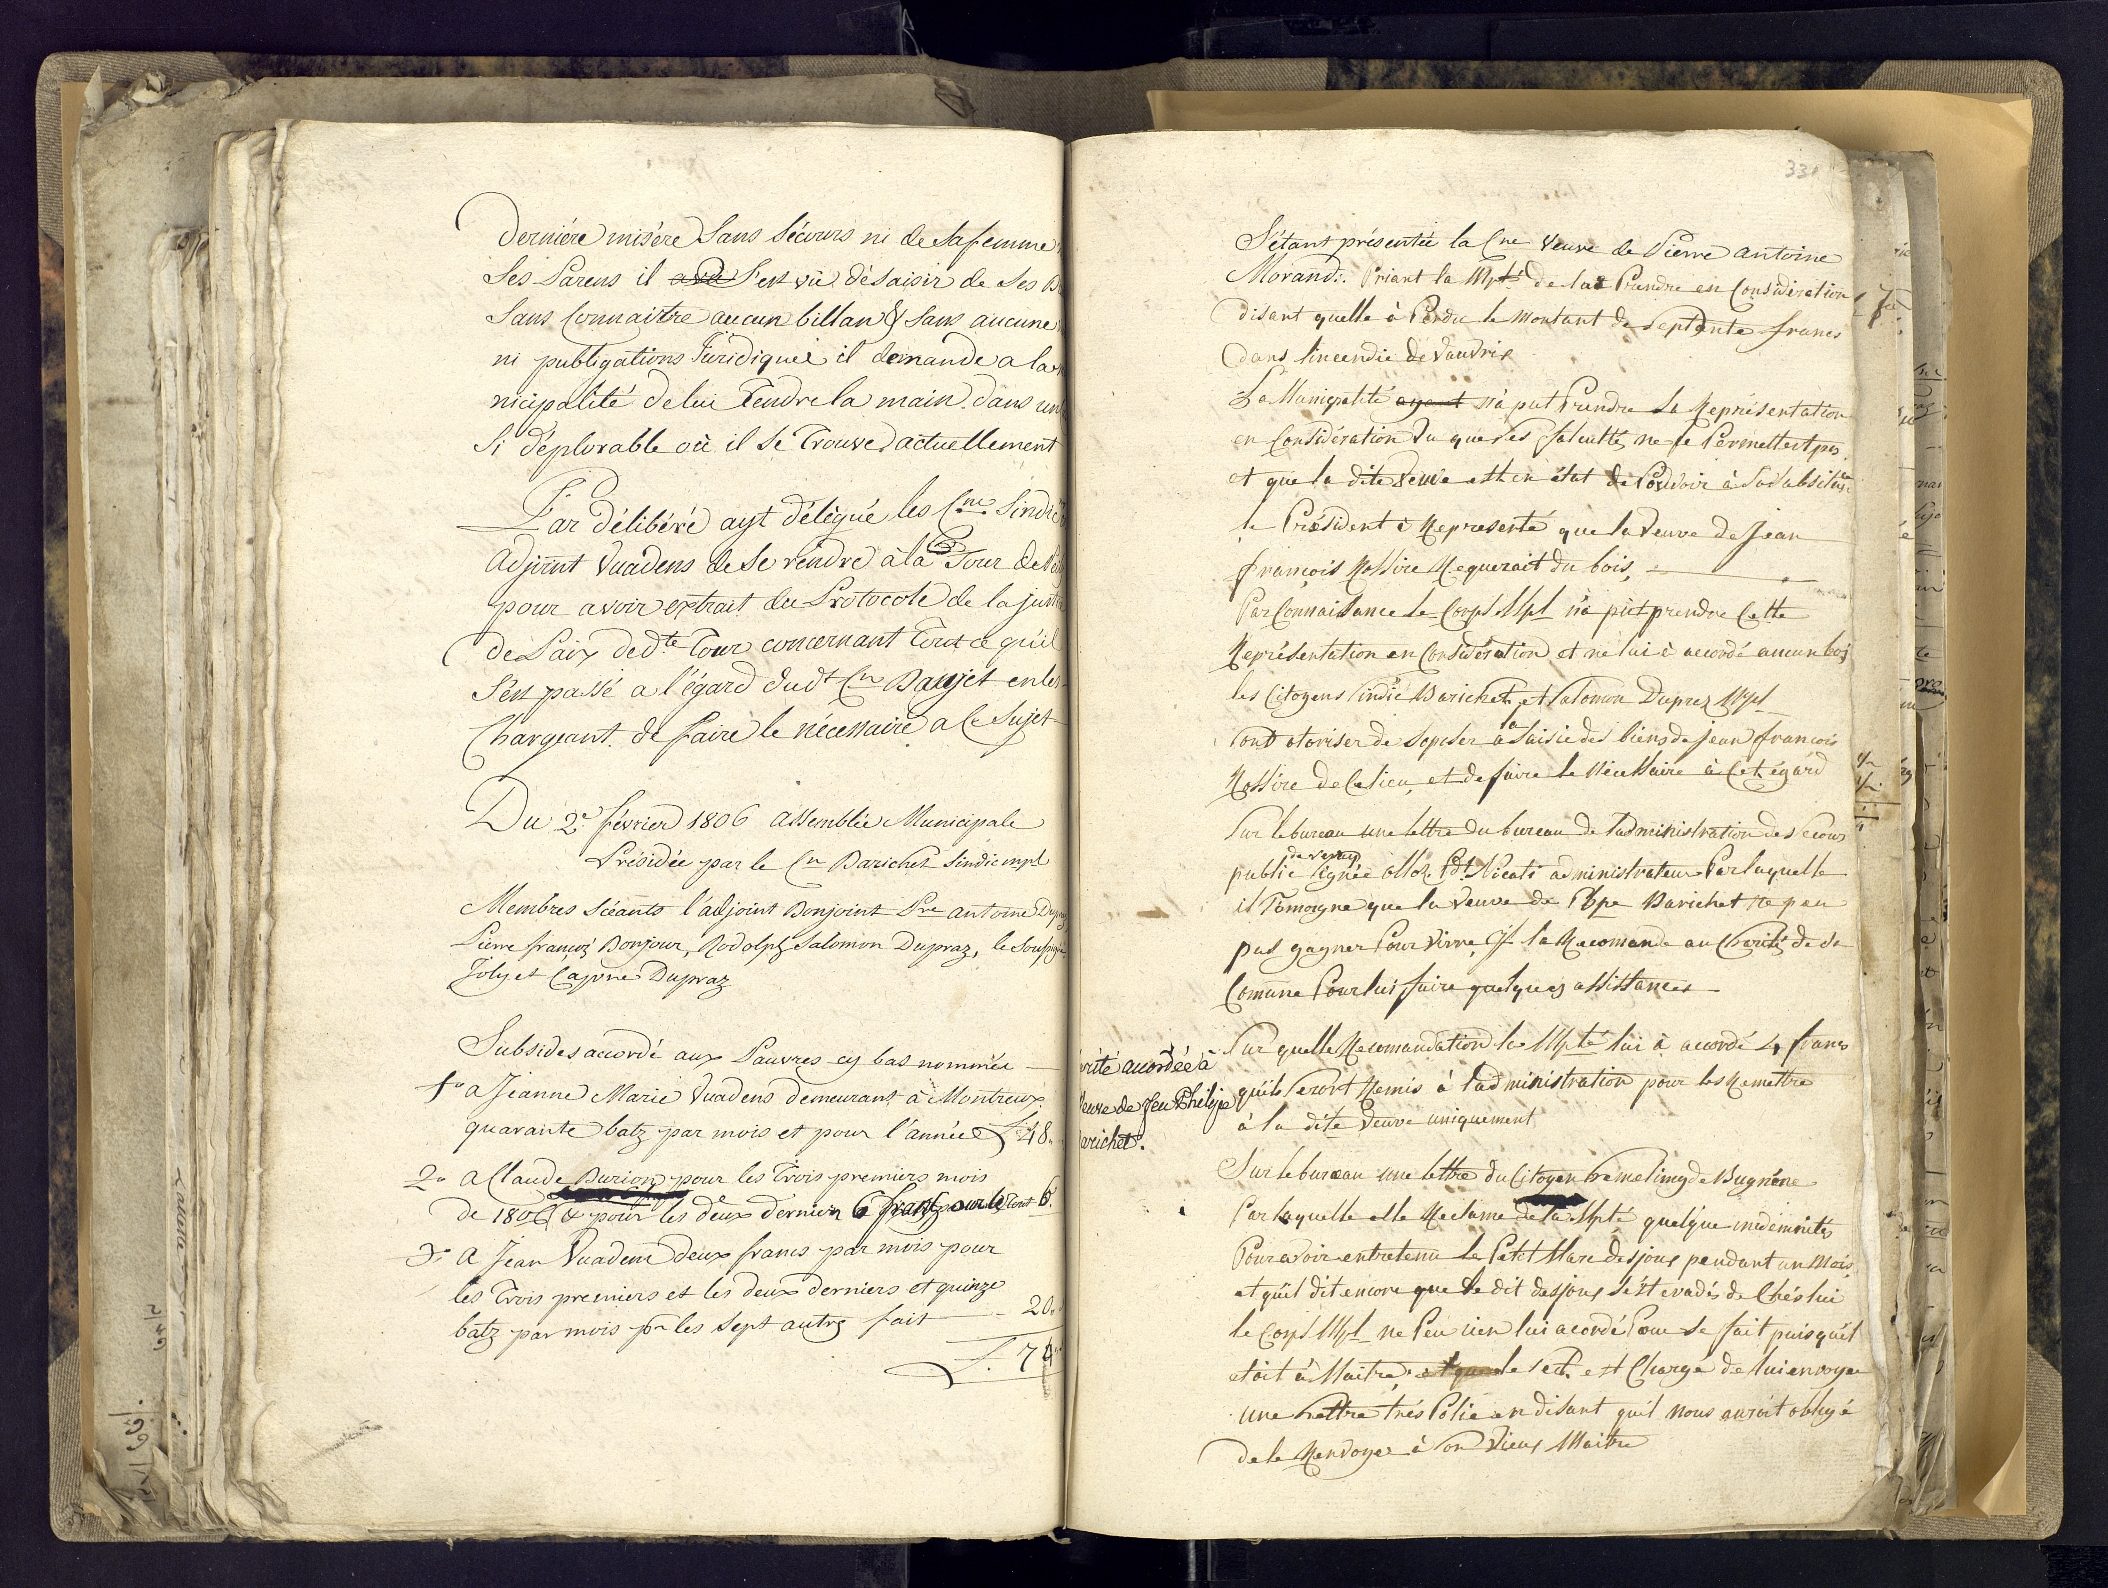 Derniére misère Sans Sécours ni de Sa femme
Ses Parens il s'est vù désaisir de ses
Sans Connaitre aucun billan & sans aucune
ni publigations Juridique il demande a la
nicipalité de lui Tendre la main dans un
Si déplorable où il se Trouve actuellement
Par délibéré ayt délégué les Cns Sindic
Adjoint Vuadens de Se rendre à la Tour de
pour avoir extrait du Protocole de la just
de Paix de dte Tour concernant Tout ce qu'il
s'est passé a l'égard dudt Cn en les
Chargeant de faire le nécessaire a Ce Sujet
Du 2e février 1806 assemblée Municipale
Présidée par le Cn Barichet Sindic mpl
Membres Séeants l'adjoint Bonjoint Pre antoine
Pierre françoi Bonjour, Rodolph Salomon Dupraz, le
Joly et Dupraz
Subsides accordé aux Pauvres cy bas nommée
1o a Jeanne Marie Vuadens demeurant à Montreux
quarante batz par mois et pour l'année f 48
2o a Claude pour les Trois premiers mois
de 1806 & pour les deux derniers 6 franc pour le tout 6
3o a Jean Vuadens deux francs par mois pour
les Trois premiers et les deux derniers et quinze
batz par mois pr les Sept autres fait 20
f. 74
331
S'étant présentée la Cne Veuve de Pierre antoine
Morand: Priant la Mpté de la Prendre en Considération
disant quelle à Perdu le montant de Septente francs
dans lincendie de
La Municipalité ayant n'à put Prendre Sa Représentation
en Considération Vu que ses facultés ne le Permettent pas
et que la dite Veuve est en état de Pouvoir à Sa
le Président à Représenté que la Veuve de Jean
françois Rossire Requerait du bois,
Par Connaissance le Corps Mpl n'à pùt prendre Cette
Représentation en Considération et ne lui à accordé aucun bois
les Citoyens Sindic Barichet et Salomon Duprez Mpl
Sont otoriser de Soposer a la Saisie des biens de Jean françois
Rossire de Ce lieu, et de faire le Nécessaire à Cet égard
Sur le bureau une lettre du bureau de l'administration des Secour
de Vevey
public Signée administrateur Par laquelle
il Témoigne que la Veuve de Phpe Barichet ne peu
pas gagner Pour Vivre, & la Recomande au Charités de Sa
Comune Pour lui faire quelques assistances
rité accordée à
Veuve de feu Philipe
arichet.
Sur quelle Recomandation la Mpté lui à accordé 4 francs
qui Seront Remis à l'administration pour les Remettre
à la dite Veuve uniquement
Sur le bureau une lettre du Citoyen
Par laquelle elle Reclame de la Mpté quelque indemnités
Pour avoir entretenu le Petit Marc Desjoux pendant un Mois,
et qu'il dit encore que le dit Desjoux s'ést evadés de Chés lui
le Corps Mpl ne Peu rien lui acordé Pour Se fait puisqu'il
etoit à Maitre, le est Chargé de lui envoyer
une lettre trés Polie en disant qu'il nous auroit obligé
de le Renvoyer à Son Vieux Maitre